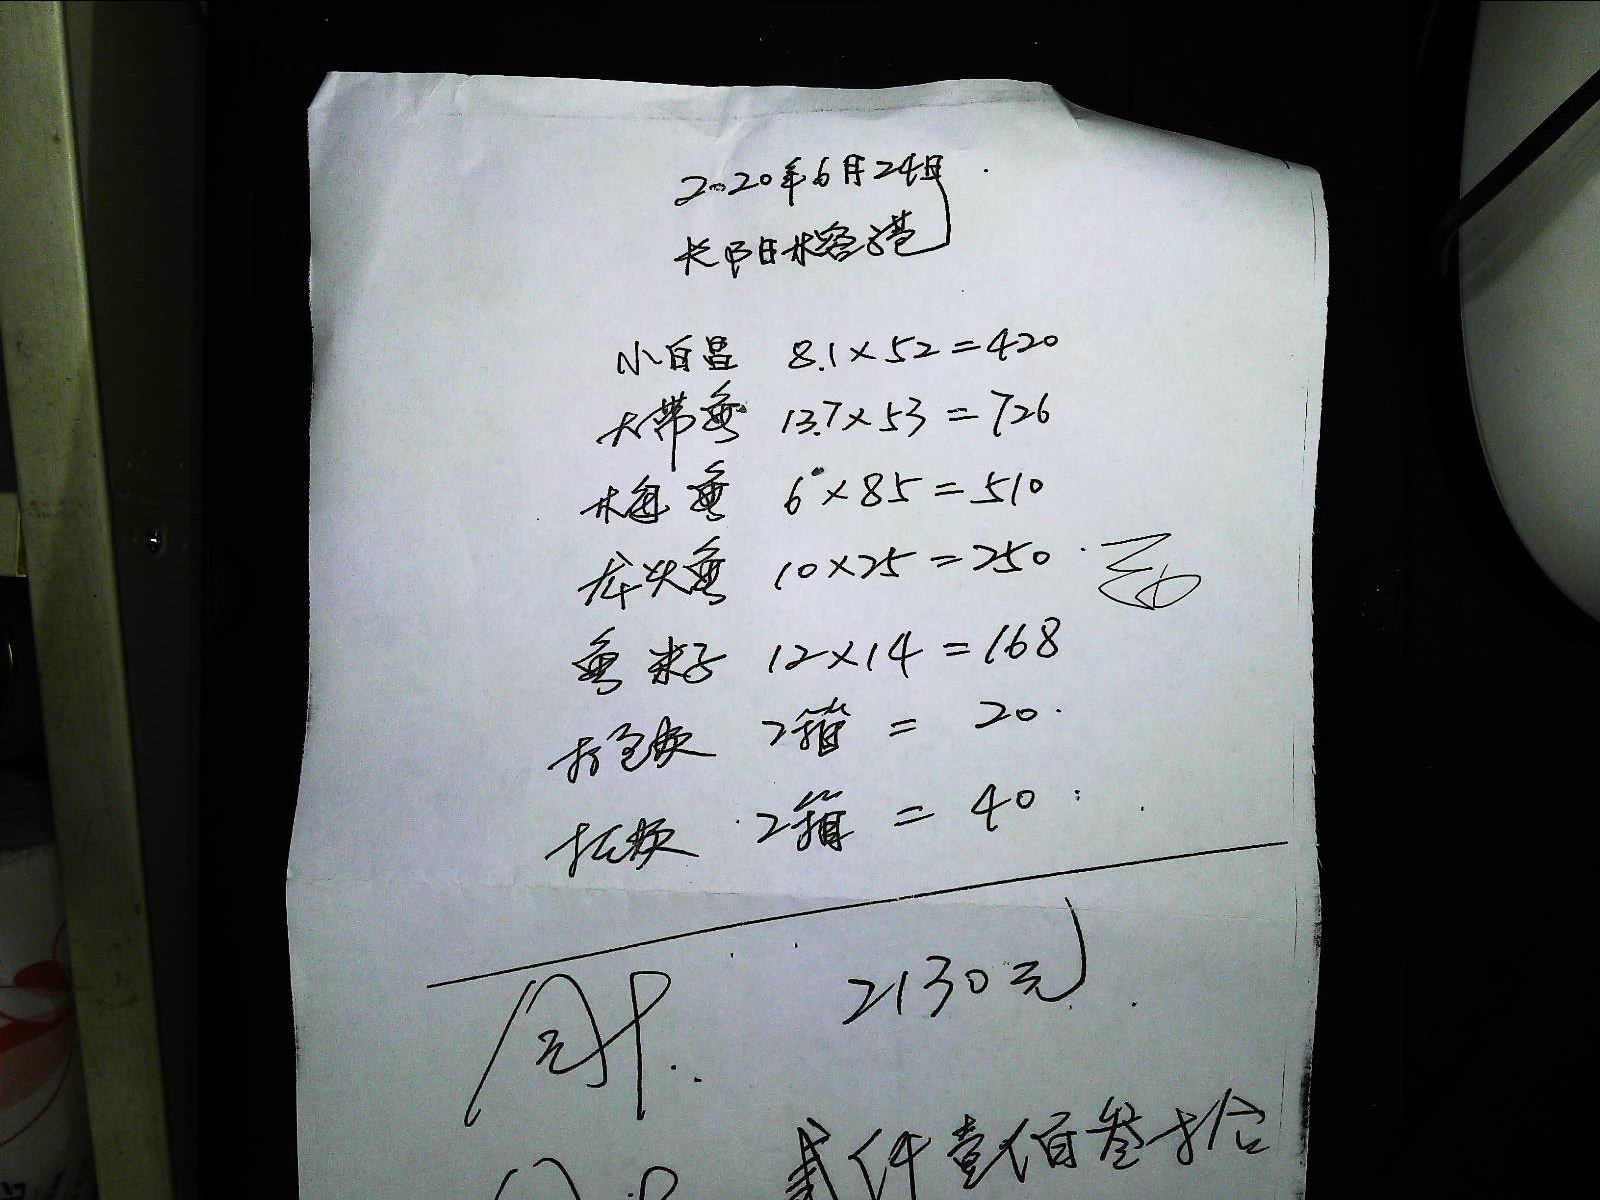 2020年6月24日
小白昌 8.1×52=420
大带鱼 13.7×53=726
梅鱼 6×85=510
龙头鱼 10×25=250
鱼籽 12×14=168
打包费 2箱 = 20
托费 2箱 = 40
2130元
贰仟壹佰叁拾